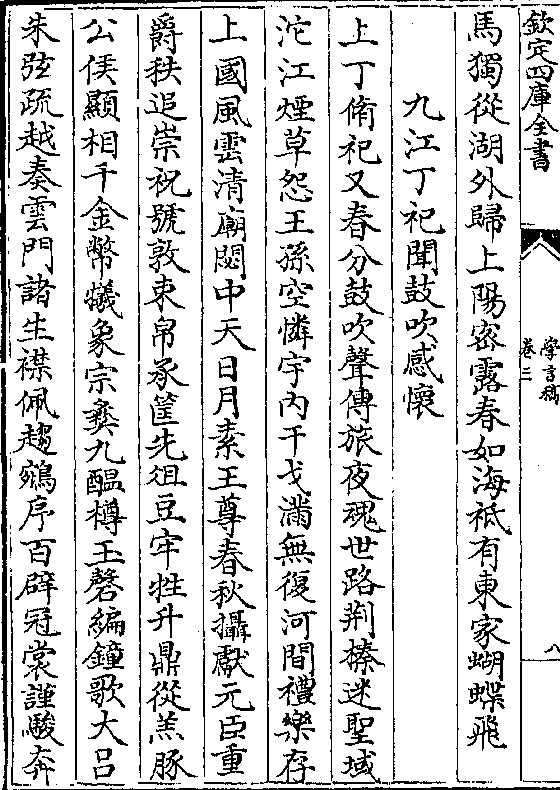 欽定四庫全書
學言稿
卷三
八
馬獨從湖外歸上陽宻露春如海祗有東家蝴蝶飛
九江丁祀聞鼓吹感懷
上丁脩祀又春分鼓吹聲傳旅夜魂世路荆榛迷聖域
沱江煙草怨王孫空憐宇内干戈滿無復河間禮樂存
上國風雲清廟閟中天日月素王尊春秋攝獻元臣重
爵秩追崇祝號敦束帛承筐先俎豆牢牲升鼎從羔豚
公侯顯相千金幣犧象宗彝九醖樽玉磬編鐘歌大吕
朱弦疏越奏雲門諸生襟佩趨鵷序百辟冠裳謹駿奔